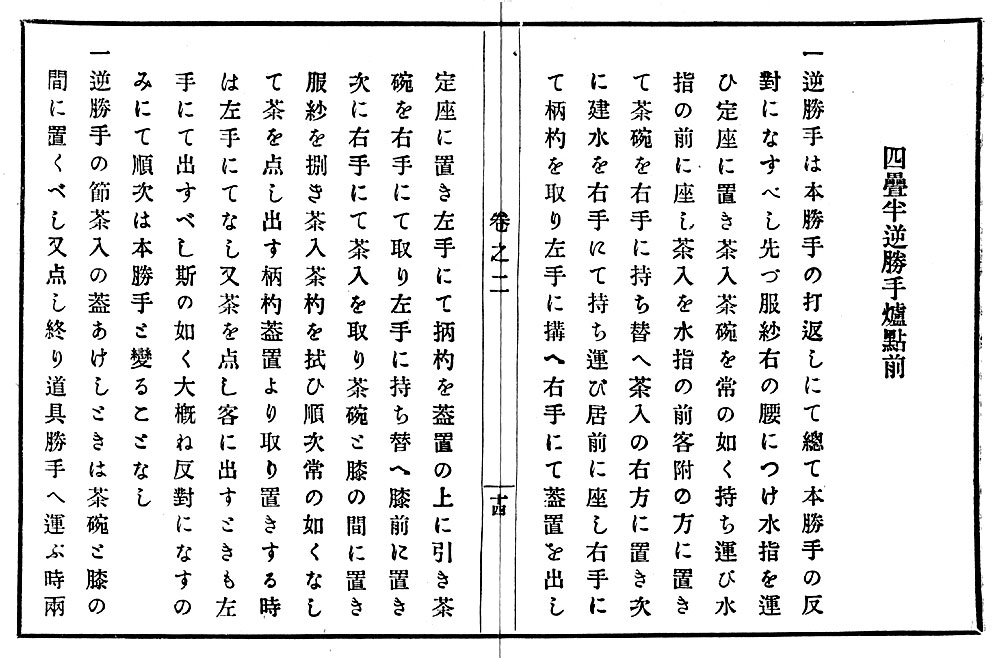 四疊半逆勝手爐點前
一逆勝手は本勝手の打返しにて總て本勝手の反
對になすべし先づ服紗右の腰につけ水指を運
ひ定座に置き茶入茶碗を常の如く持ち運び水
指の前に座し茶入を水指の前客附の方に置き
て茶碗を右手に持ち替へ茶入の右方に置き次
に建水を右手にて持ち運び居前に座し右手に
て柄杓を取り左手に搆へ右手にて葢置を出し
卷之二
十四
定座に置き左手にて柄杓を葢置の上に引き茶
碗を右手にて取り左手に持ち替へ膝前に置き
次に右手にて茶入を取り茶碗と膝の間に置き
服紗を捌き茶入茶杓を拭ひ順次常の如くなし
て茶を点し出す柄杓葢置より取り置きする時
は左手にてなし又茶を点し客に出すときも左
手にて出すべし斯の如く大槪ね反對になすの
みにて順次は本勝手と變ることなし
一逆勝手の節茶入の葢あけしときは茶碗と膝の
間に置くべし又点し終り道具勝手へ運ぶ時兩